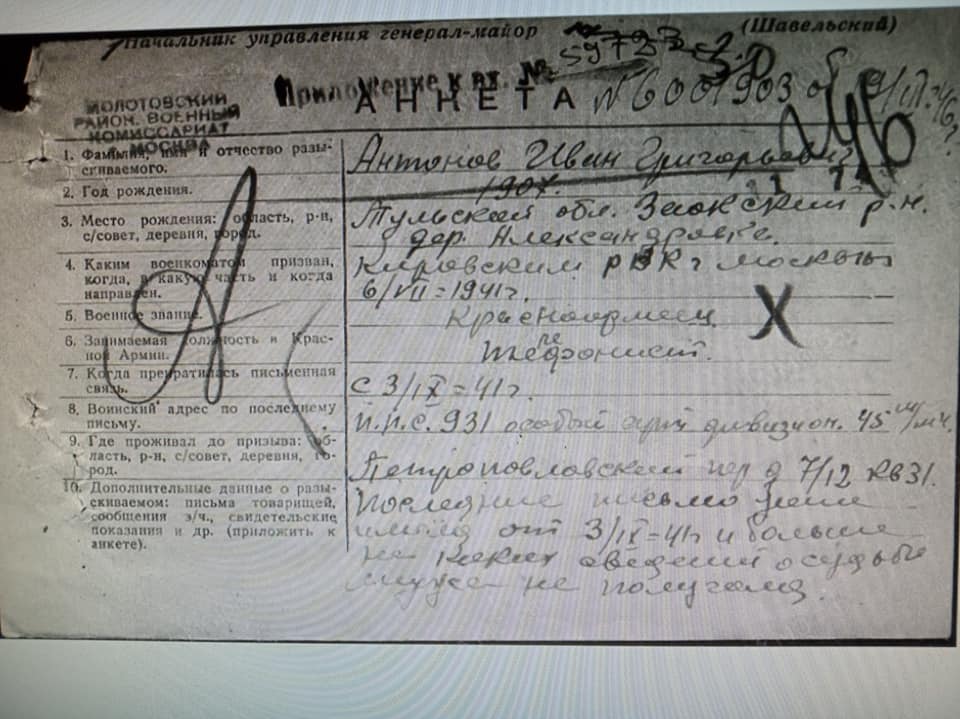 Начальник управления генерал-майор (Шавельский)
Приложение к вх. № 59723
АНКЕТА
МОЛОТОВСКИЙ
РАЙОН. ВОЕННЫЙ
КОМИССАРИАТ
МОСКВА
1. Фамилия, имя и отчество разыскиваемого.
Антонов Иван Григорьевич
2. Год рождения.
3. Место рождения: область, р-н, с/совет, деревня, город.
Тульской обл. Заокским р.н.
дер. Александровке.
4. Каким военкоматом призван, когда, в какую часть и когда направлен.
Кировским РВК г москвы
6/VII=1941г.
5. Военное звание.
Красноармеец
6. Занимаемая должность в Красной Армии.
7. Когда прекратилась письменная связь.
с 3/IX=41г.
8. Воинский адрес по последнему письму.
п.п.с. 931 особый арт дивизион. 45
9. Где проживал до призыва: область, р-н, с/совет, деревня, город.
Петроповловский пер д 7/12 кв 31.
10. Дополнительные данные о разыскиваемом: письма товарищей, сообщения з/ч., свидетельские показания и др. (приложить к анкете).
Последние письмо
от 3/IX=41г и больше
не каких сведений о судьбе
мужа не получала.